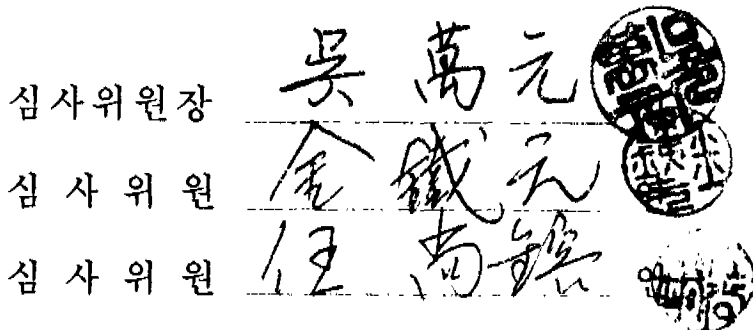 심사위원장 吳萬元
심사위원 金鐵元
심사위원 任尚鎔